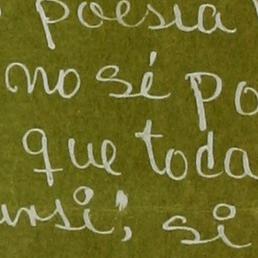 poesia
no sé po
que toda
ursi", si